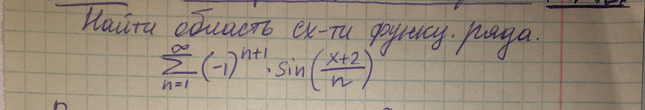 Найти область сх-ти функц. ряда.
∞∑n=1 (-1)^{n+1} · sin((x+2)/n)